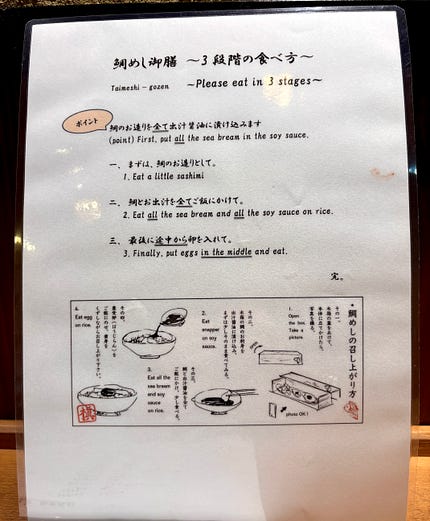 鯛めし御膳 ～3段階の食べ方～
Taimeshi-gozen ～Please eat in 3 stages～
ポイント
鯛のお造りを全て出汁醤油に漬け込みます
(point) First, put all the sea bream in the soy sauce.
一、まずは、鯛のお造りとして。
1. Eat a little sashimi
二、鯛とお出汁を全てご飯にかけて。
2. Eat all the sea bream and all the soy sauce on rice.
三、最後に途中から卵を入れて。
3. Finally, put eggs in the middle and eat.
完。
鯛めしの召し上がり方
1.
Open
the box.
Take a
picture.
photo OK!
2.
Eat
snapper
on soy
sauce.
3.
Eat all the
sea bream
and soy
sauce
on rice.
4.
Eat egg
on rice.